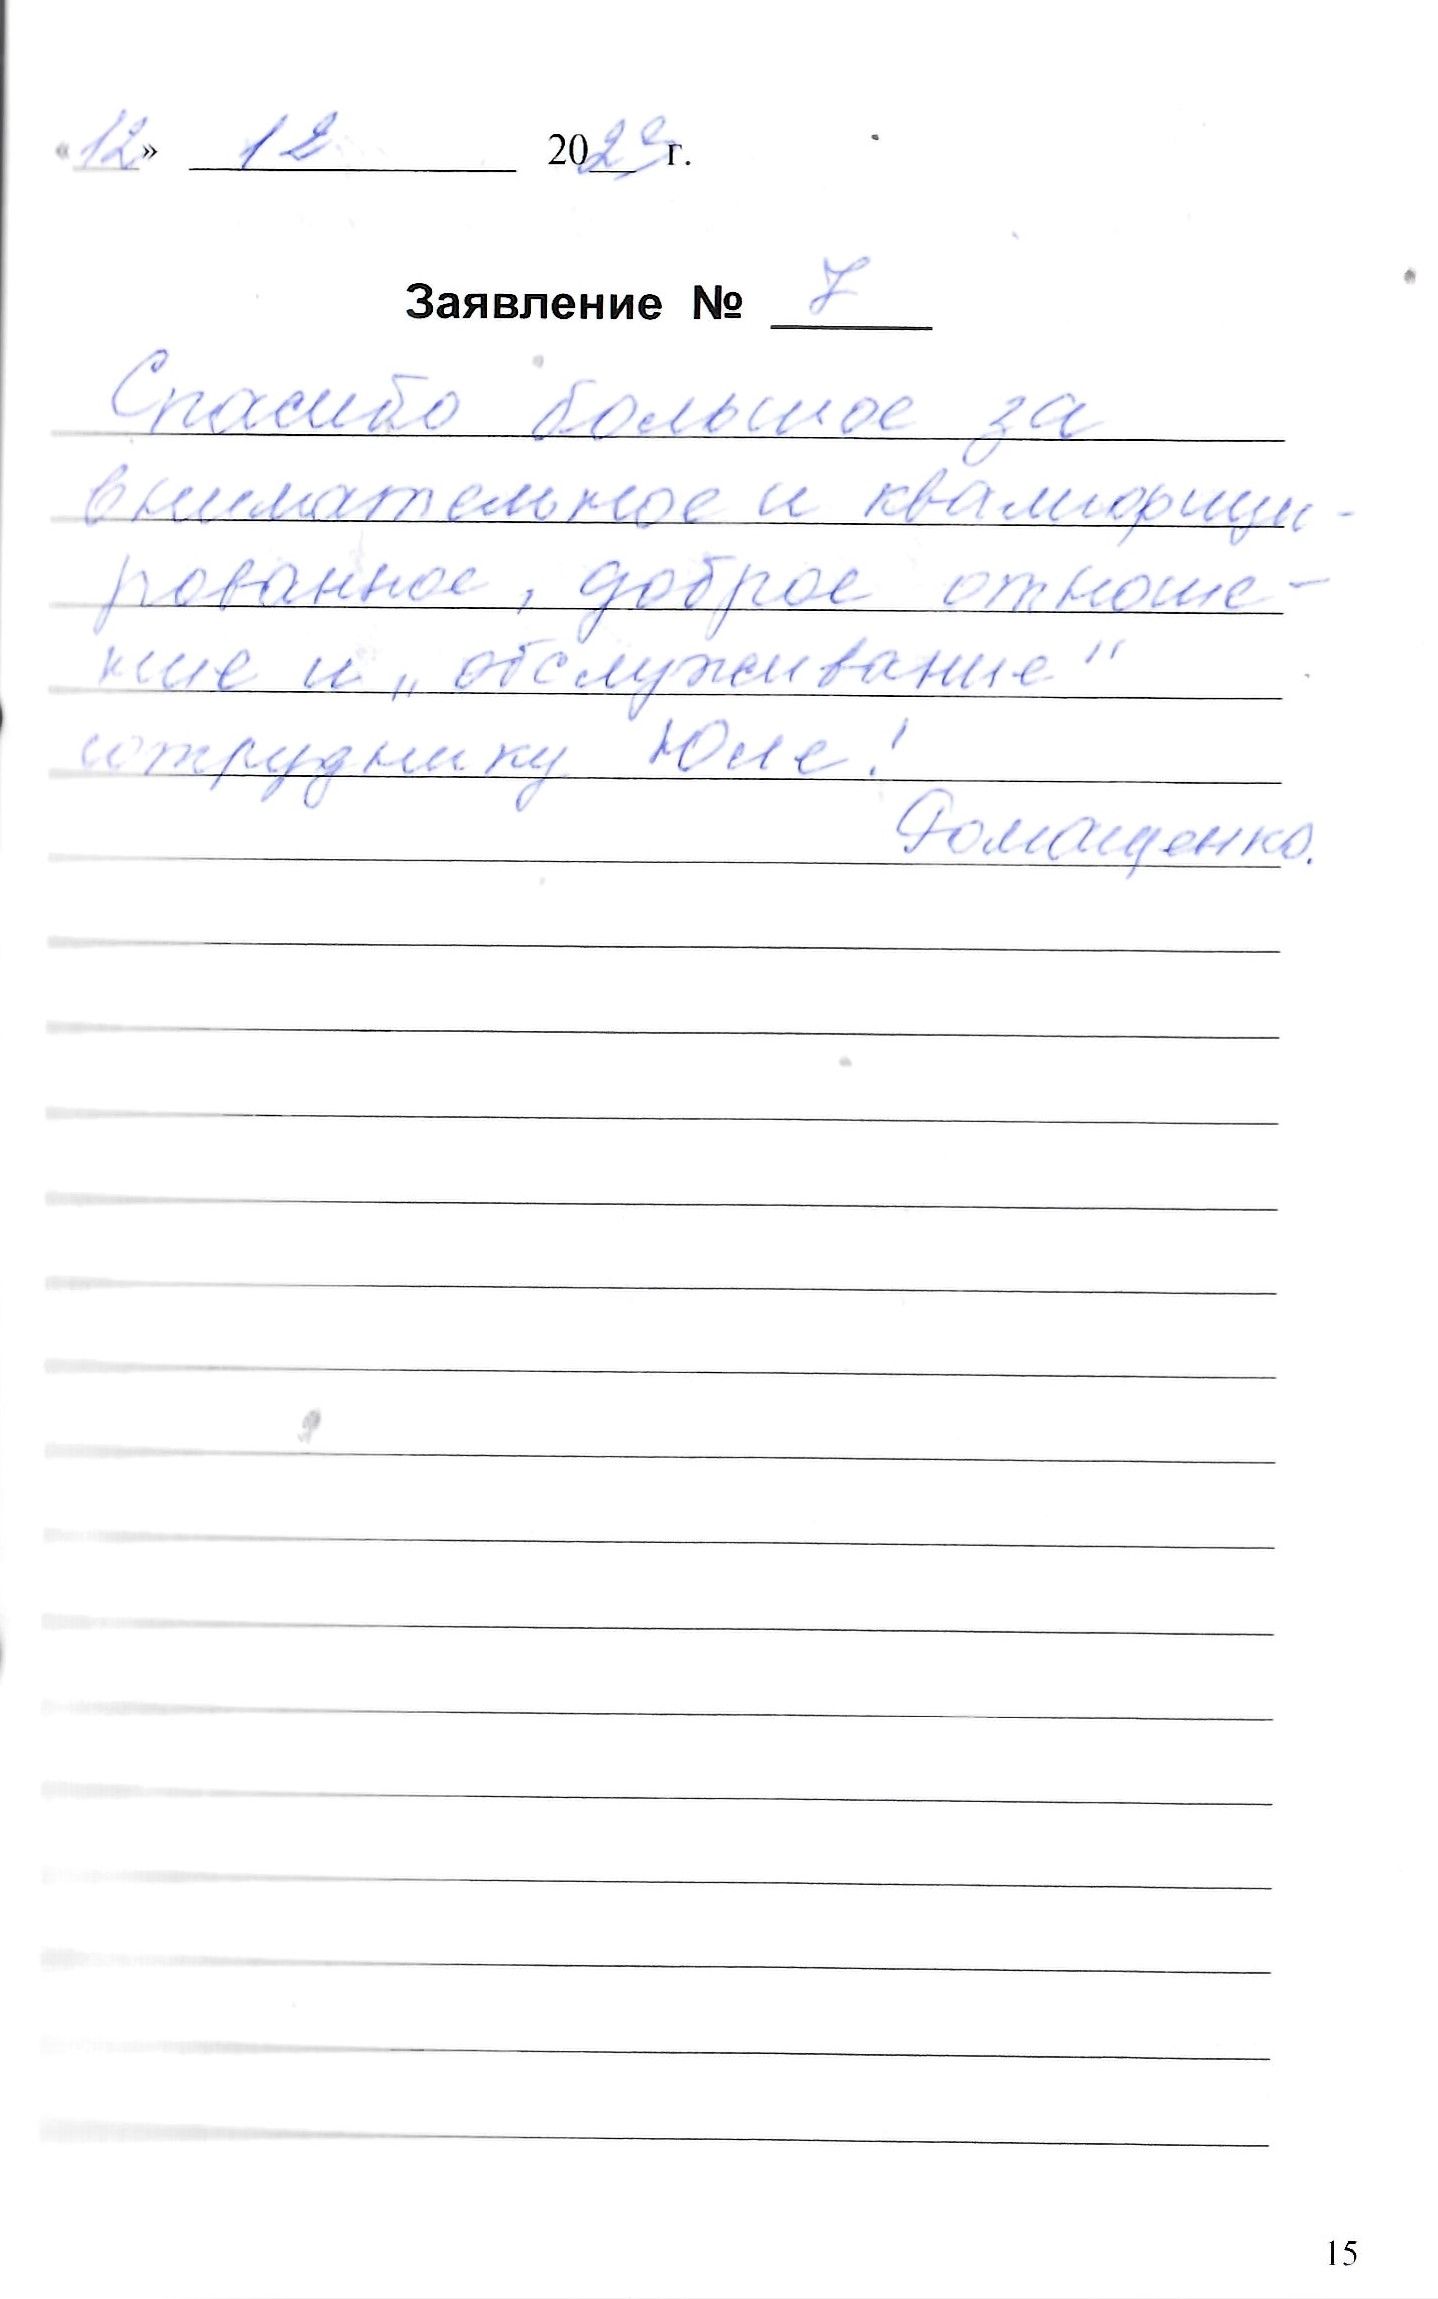 «12» 12 2023 г.
Заявление № 7
Спасибо большое за
внимательное и квалифици-
рованное, доброе отноше-
ние и „обслуживание"
сотруднику Юле!
Ромащенко.
15